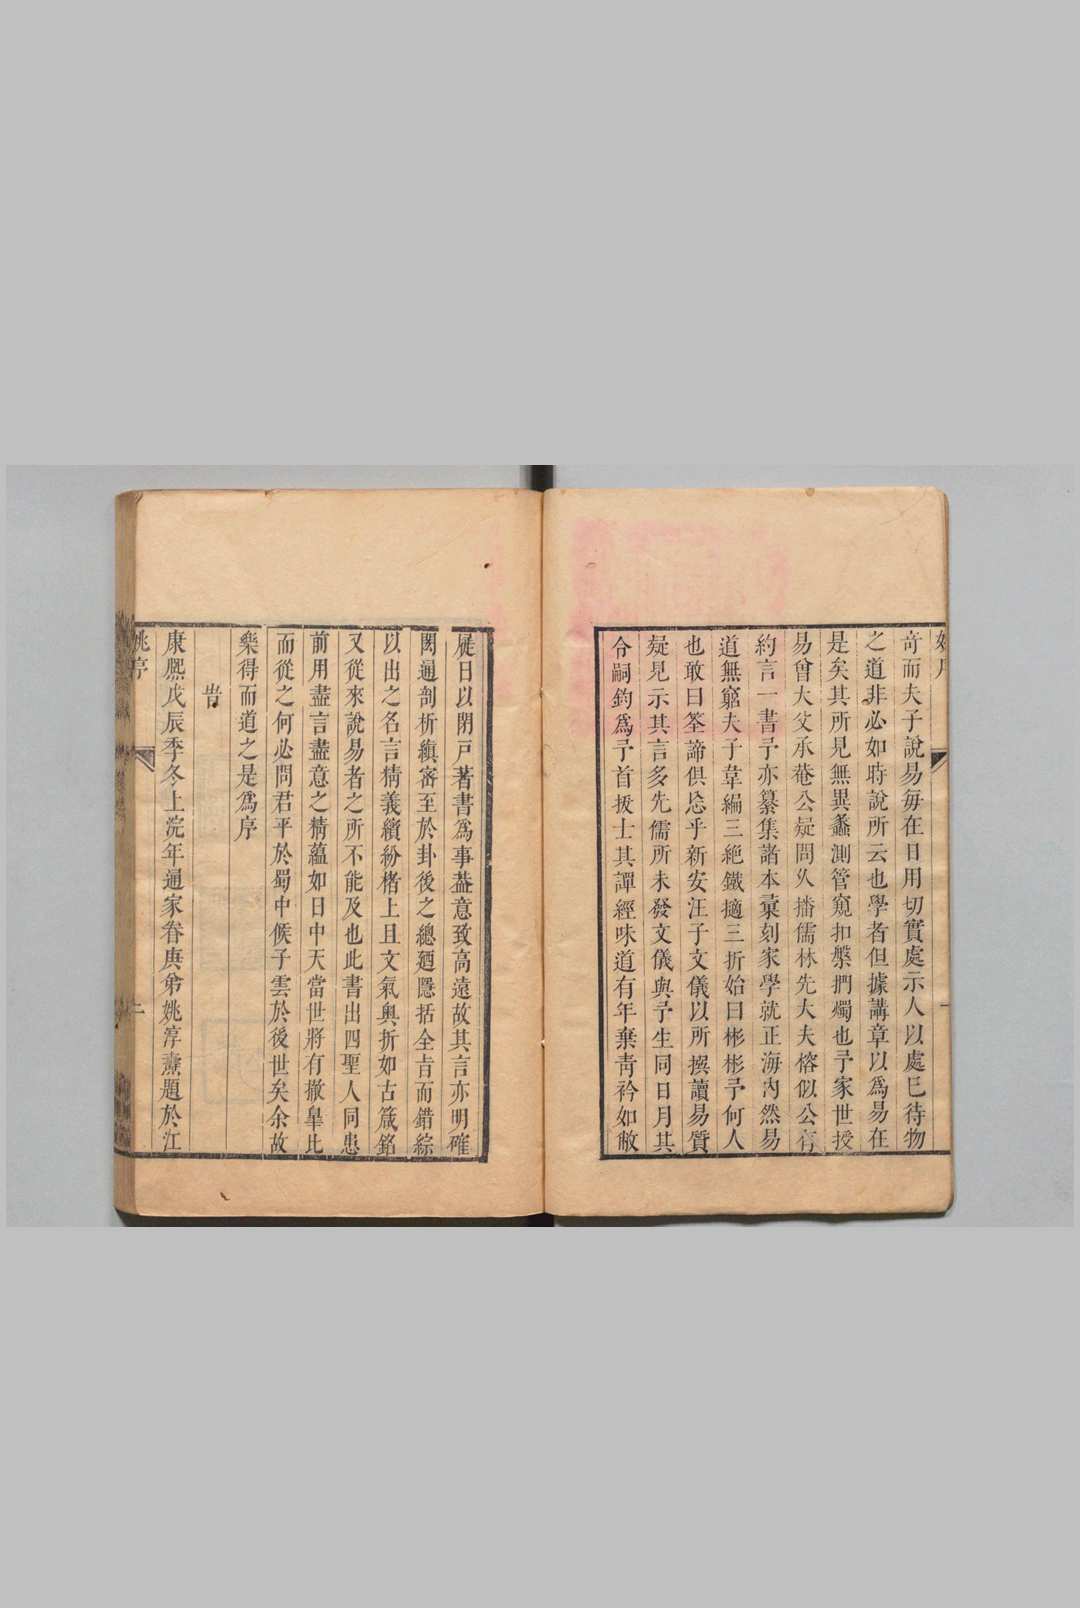 奇而夫子說易每在日用切實處示人以處已待物
之道非必如時說所云也學者但據講章以爲易在
是矣其所見無異蠡測管窺扣槃捫燭也予家世授
易曾大父承菴公疑問久播儒林先大夫榕似公有
約言一書予亦纂集諸本彙刻家學就正海內然易
道無窮夫子韋編三絕鐵擿三折始曰彬彬予何人
也敢曰筌諦俱忘乎新安汪子文儀以所撰讀易質
疑見示其言多先儒所未發文儀與予生同日月其
令嗣鈞爲予首拔士其譚經味道有年棄靑衿如敝
屣日以閉戸著書爲事葢意致高遠故其言亦明確
閎通剖析縝密至於卦後之總廼隱括全㫖而錯綜
以出之名言精義繽紛楮上且文氣奥折如古箴銘
又從來說易者之所不能及也此書出四聖人同患
前用盡言盡意之精蘊如日中天當世將有撤皐比
而從之何必問君平於蜀中候子雲於後世矣余故
樂得而道之是爲序
旹
康熙戊辰季冬上浣年通家眷庚弟姚淳燾題於江
姚序
二